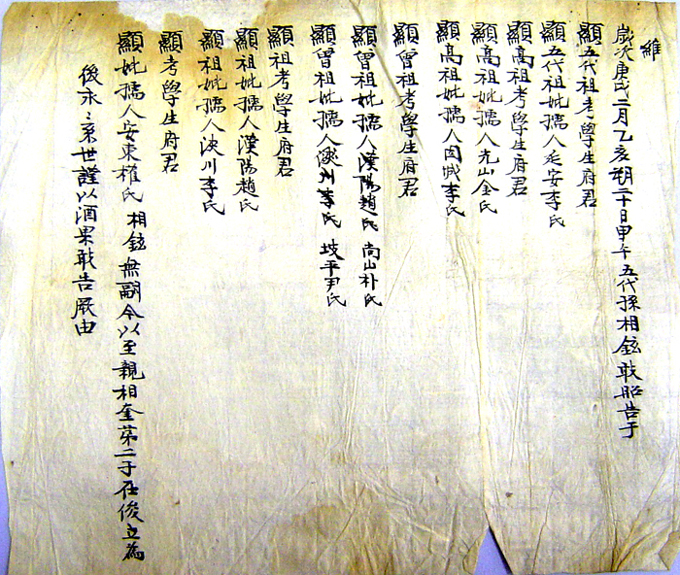 維
歲次庚戌二月乙亥朔二十日甲午五代孫相鉉敢昭告于
顯五代祖考學生府君
顯五代祖妣孺人延安李氏
顯高祖考學生府君
顯高祖妣孺人光山金氏
顯高祖妣孺人固城李氏
顯曾祖考學生府君
顯曾祖妣孺人漢陽趙氏 尙山朴氏
顯曾祖妣孺人 李氏 坡平尹氏
顯祖考學生府君
顯祖妣孺人漢陽趙氏
顯祖妣孺人 川李氏
顯考學生府君
顯妣孺人安東權氏 相鉉無嗣今以至親相奎第二子在俊立爲
後永 世謹以酒果敢告厥由